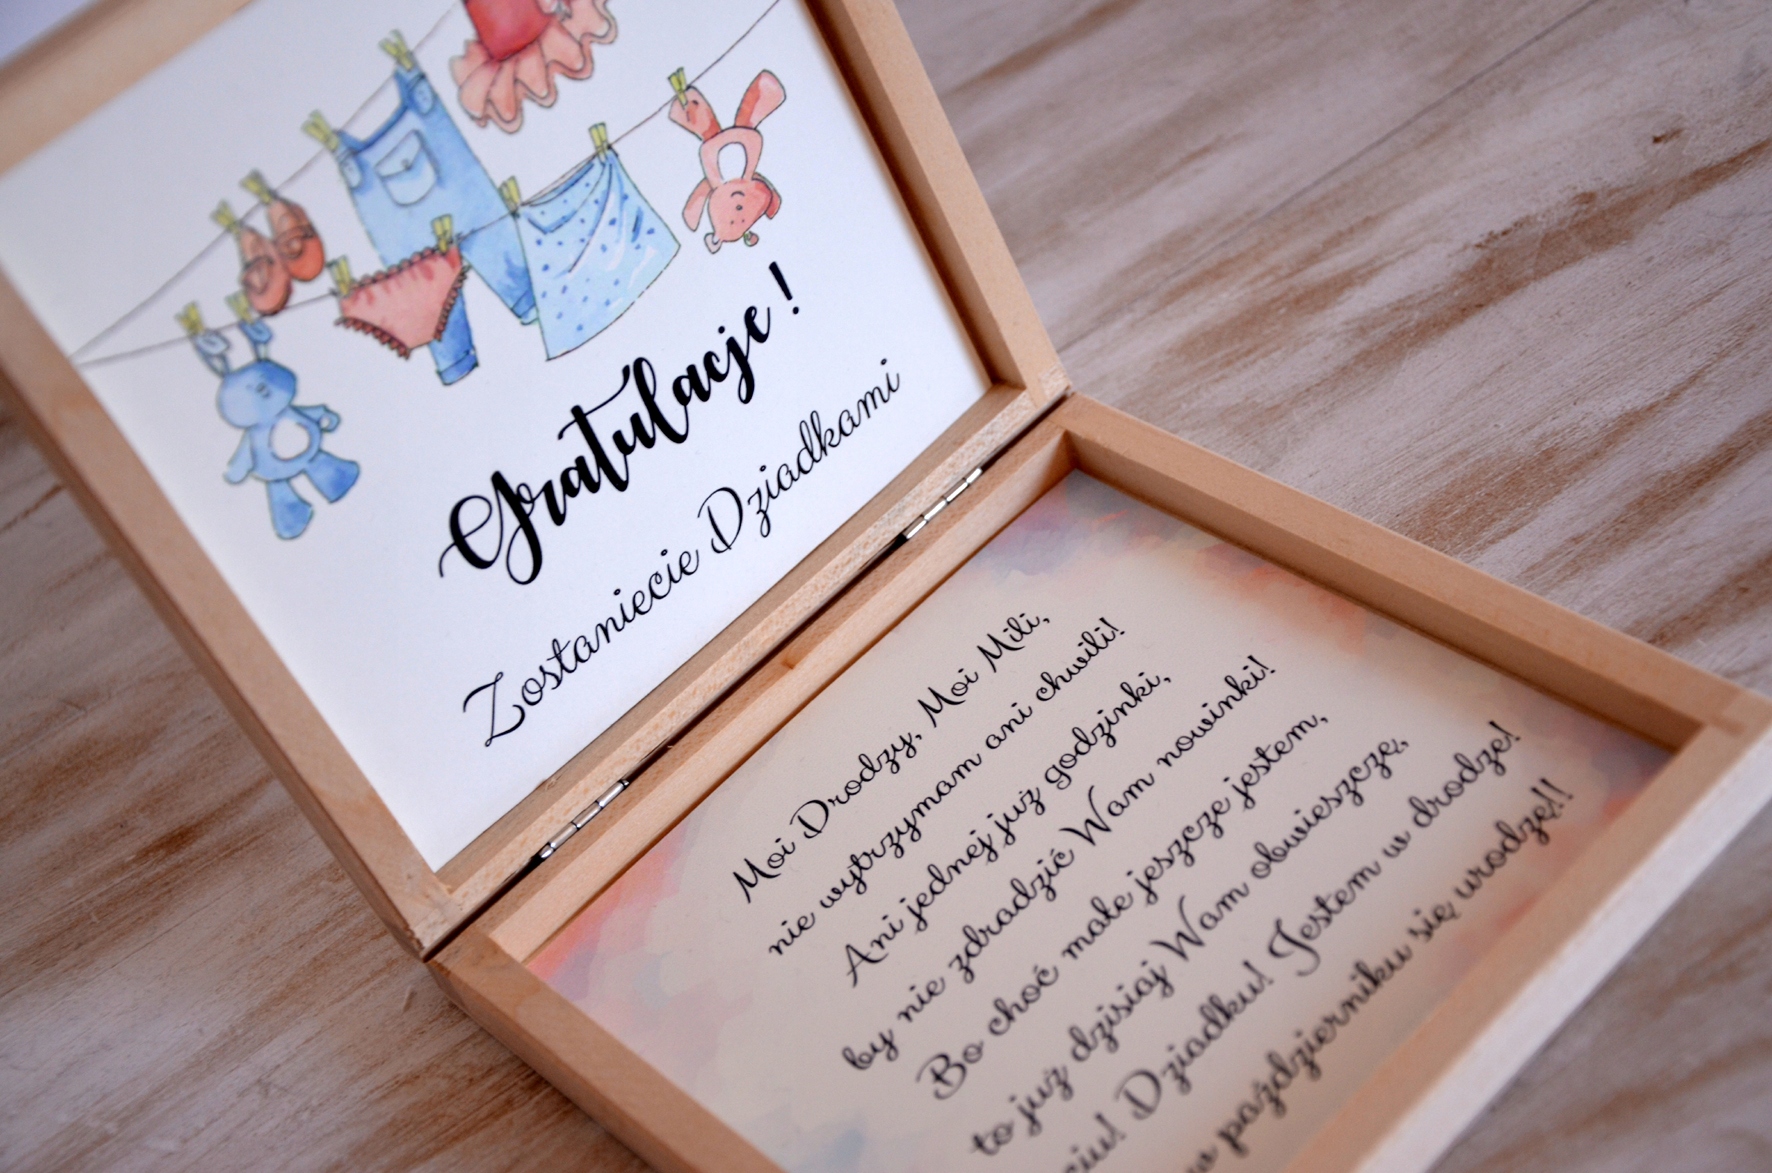 Gratulacje !
Zostaniecie Dziadkami
Moi Drodzy, Moi Mili,
nie wytrzymam ani chwili!
Ani jednej już godzinki,
by nie zdradzić Wam nowinki!
Bo choć małe jeszcze jestem,
to już dzisiaj Wam obwieszczę,
Dziadku! Jestem w drodze!
październiku się urodzę!!